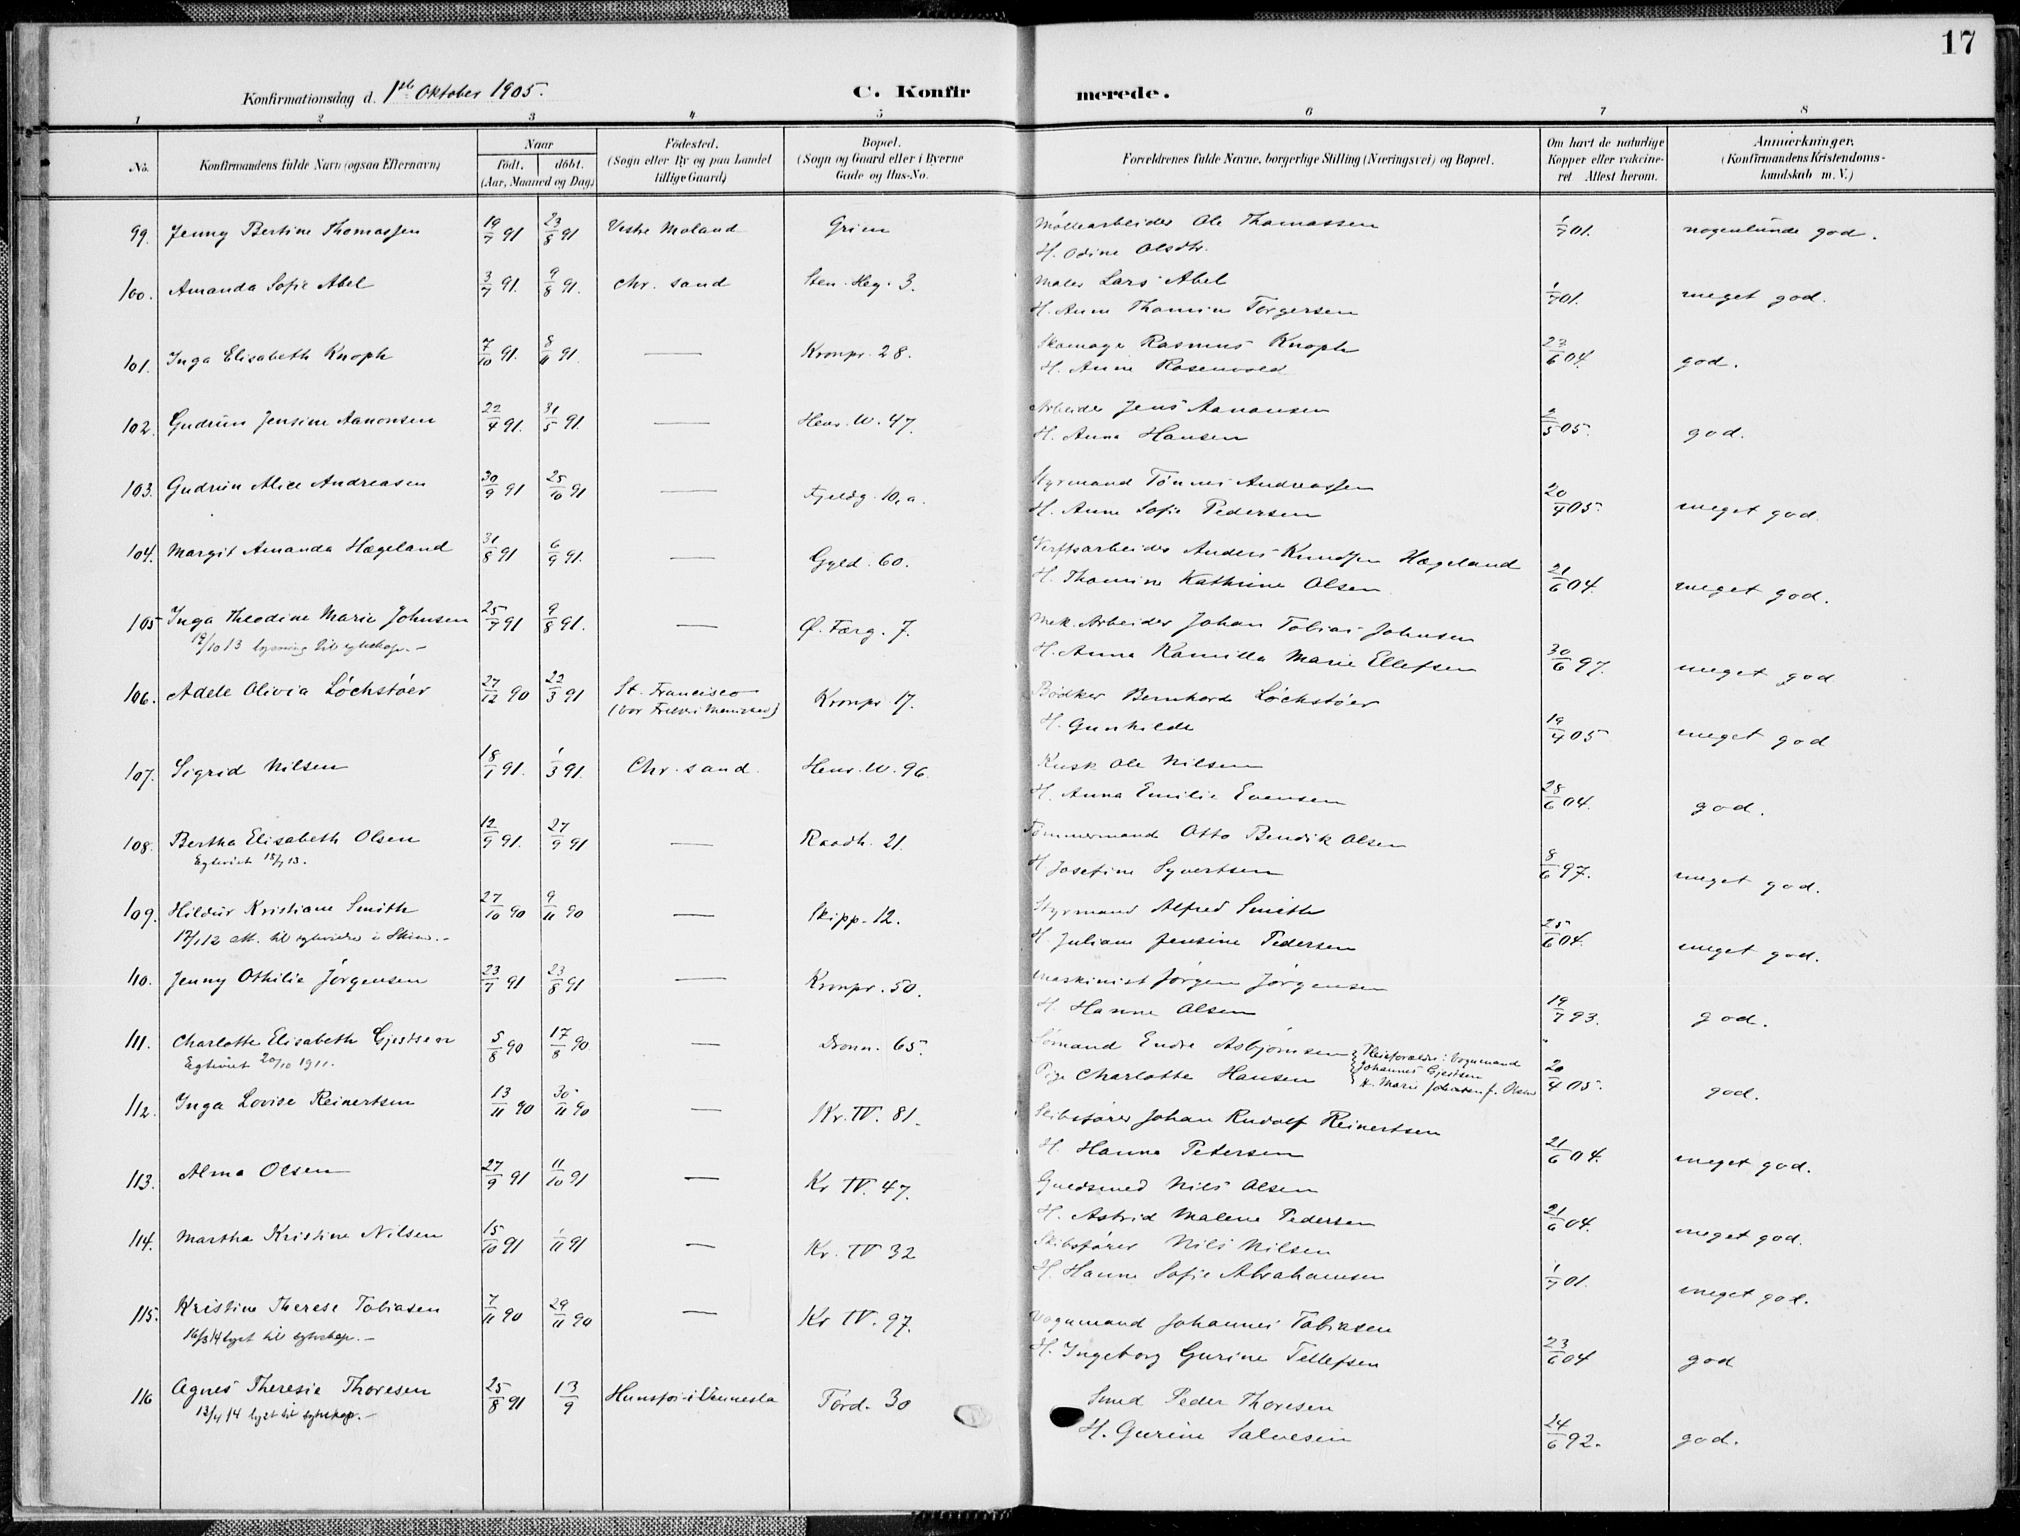 17
Konfirmationsdag d. 1ste Oktober 1905.
C. Konfirmerede.
1 2 3 4 5 6 7 8
No. Konfirmandens fulde Navn (ogsaa Efternavn) Naar født. døbt. (Aar, Maaned og Dag) Fødested. (Sogn eller By og paa Landet tillige Gaard) Bopæl. (Sogn og Gaard eller i Byerne Gade og Hus-No. Forældrenes fulde Navne, borgerlige Stilling (Næringsvei) og Bopæl. Om havt de naturlige Kopper eller vakcineret Attest herom. Anmærkninger. (Konfirmandens Kristendomskundskab m. V.)
99. Jenny Bertine Thomassen 19/7 91 23/8 91 Vestre Moland Grim Møllearbeider Ole Thomassen 1/7 01. nogenlunde god.
H. Odine Olsdtr.
100. Amanda Sofie Abel 3/7 91. 9/8 91. Chr. sand Sten. Hey. 3. Maler Lars Abel 1/7 01. meget god.
H. Anne Thomine Torgersen
101. Inga Elisabeth Knoph 7/10 91. 8/11 91. — Kronpr. 28. Skomager Rasmus Knoph 23/6 04. god.
H. Anne Rosenvold
102. Gudrun Jensine Aanonsen 22/4 91. 31/5 91. — Henr. W. 47. Arbeider Jens Aanonsen 2/5 05. god.
H. Anna Hansen
103. Gudrun Alice Andreasen 30/9 91 25/10 91 — Fjeldg. 10,a. Styrmand Tønnes Andreassen 20/4 05. meget god.
H. Anne Sofie Pedersen
104. Margit Amanda Hægeland 31/8 91 6/9 91. — Gyld. 60. Verftsarbeider Anders Knudsen Hægeland 21/6 04. meget god.
H. Thomine Kathrine Olsen
105 Inga Theodine Marie Johnsen 25/7 91 9/8 91. — Ø. Færg. 7. Mek. Arbeider Johan Tobias Johnsen 30/6 97. meget god
19/10 13 lysning til egteskap. —
H. Anna Kamilla Marie Ellefsen
106. Adele Olivia Løchstøer 27/12 90 22/3 91 St. Francisco Kronpr 17. Bødker Bernhard Løchstøer 19/4 05 meget god
H. Gunhilde
107. Sigrid Nilsen 18/1 91. 1/3 91 Chr. sand. Henr. W. 96. Kusk Ole Nilsen 28/6 04. god.
H. Anna Emilie Evensen
108. Bertha Elisabeth Olsen 12/9 91. 27/9 91 — Raadh. 21. Tømmermand Otto Bendik Olsen 8/6 97. meget god.
Egteviet 18/7 13.
H Josefine Syvertsen
109. Hildur Kristiane Smith 27/10 90 9/11 90 — Skipp. 12. Styrmand Alfred Smith 25/6 04. meget god.
H. Juliane Jensine Pedersen
110. Jenny Othilie Jørgensen 23/7 91 23/8 91 — Kronpr. 50. Maskinist Jørgen Jørgensen 19/7 93. god.
H. Hanne Olsen
111. Charlotte Elisabeth Gjertsen 5/8 90 17/8 90 — Dronn. 65. Sømand Endre Asbjørnsen Pleieforældre: Vognmand 20/4 05. god.
Egteviet 20/10 1911.
Pige Charlotte Hansen Johannes Gjertsen
112. Inga Lovise Reinertsen 13/11 90 30/11 90 — Kr. IV. 81. Skibsfører Johan Rudolf Reinertsen 21/6 04. meget god.
H. Hanna Petersen
113. Alma Olsen 27/9 91 11/10 91 — Kr IV. 47. Guldsmed Nils Olsen 21/6 04. meget god.
H. Astrid Malene Pedersen
114. Martha Kristine Nilsen 15/10 91 1/11 91 — Kr. IV 32 Skibsfører Nils Nilsen 1/7 01. meget god.
H. Hanne Sofie Abrahamsen
115. Kristine Therese Tobiasen 7/11 90 29/11 90 — Kr IV. 97. Vognmand Johannes Tobiasen 23/6 04 god
16/3 14 lyst til egteskap. —
H. Ingeborg Gurine Tellefsen
116 Agnes Theresie Thoresen 25/8 91 13/9 Hunsfos i Vennesla Tord. 30 Smed Peder Thoresen 24/6 92. god.
13/4 14 lyst til egteskap. —
H. Gurine Salvesen